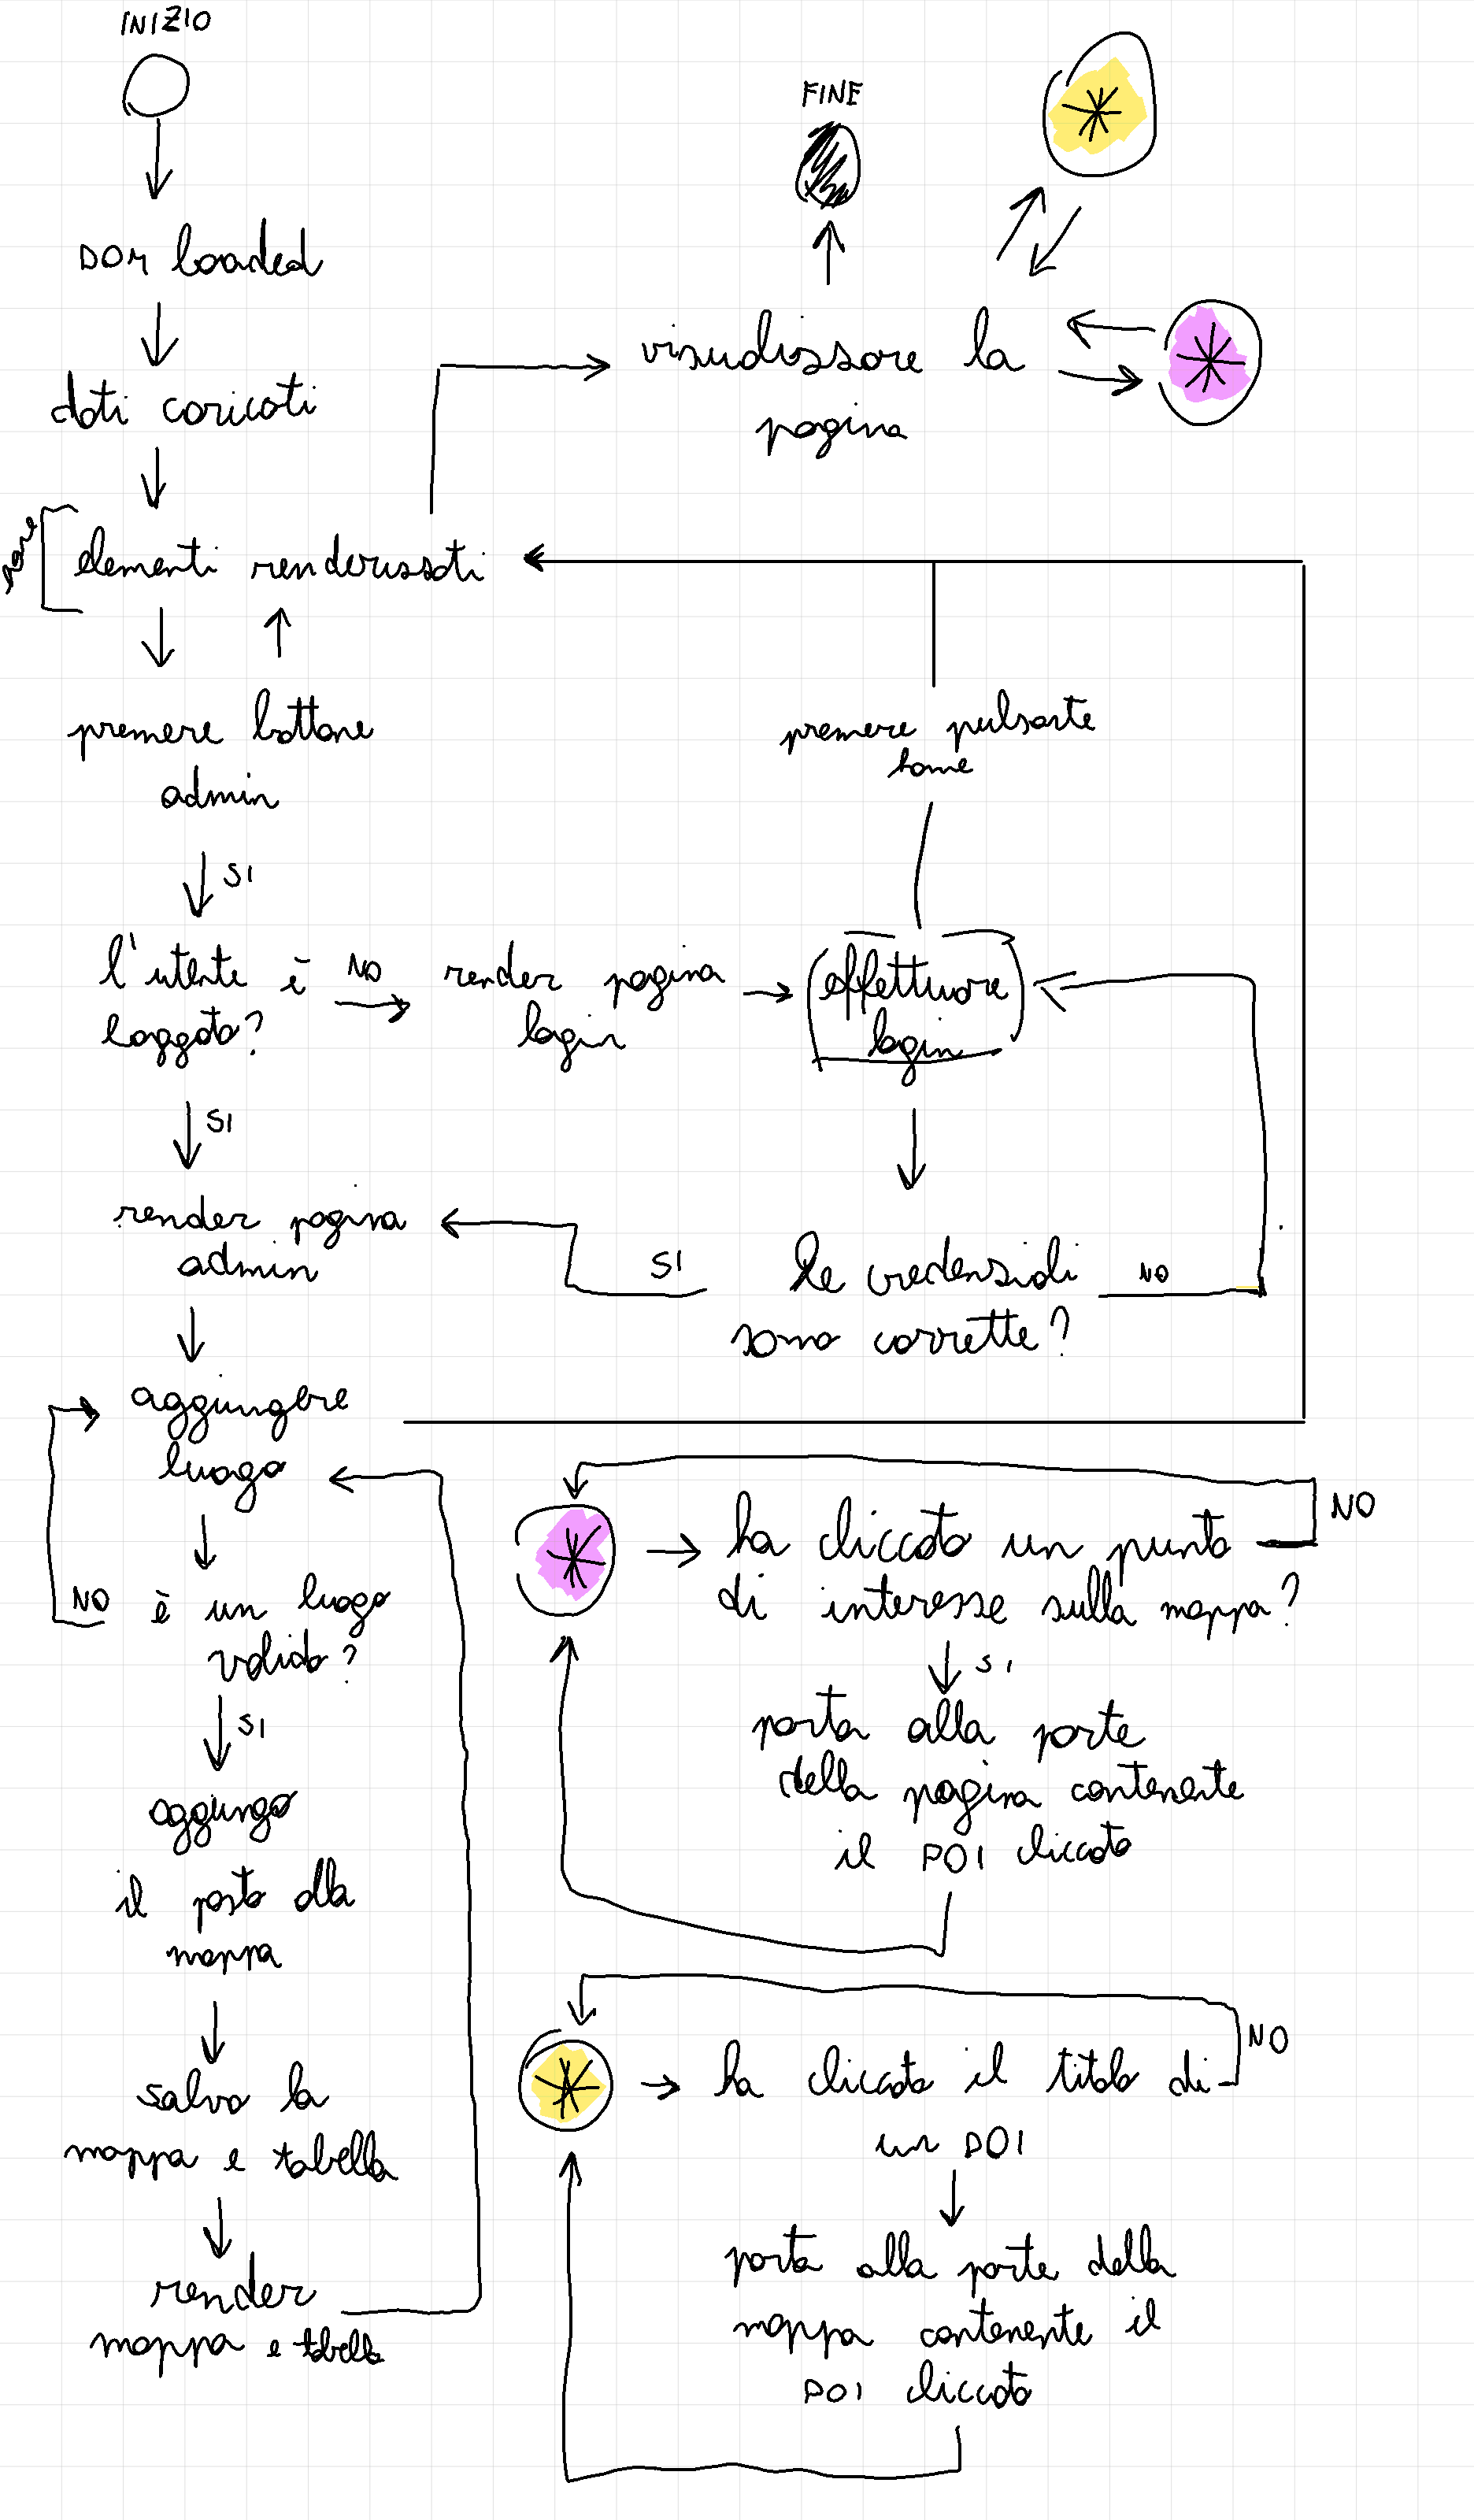 INIZIO
FINE
DOM loaded
dati caricati
visualizzare la
pagina
home
elementi renderizzati
premere bottone
admin
premere pulsante
home
SI
l'utente è
loggato?
NO
render pagina
login
effettuare
login
SI
render pagina
admin
SI
le credenziali
sono corrette?
NO
aggiungere
luogo
NO
è un luogo
valido?
SI
aggiungo
il posto alla
mappa
salvo la
mappa e tabella
render
mappa e tabella
ha cliccato un punto
di interesse sulla mappa?
NO
SI
porta alla parte
della pagina contenente
il POI cliccato
ha cliccato il titolo di
un POI
NO
porta alla parte della
mappa contenente il
POI cliccato